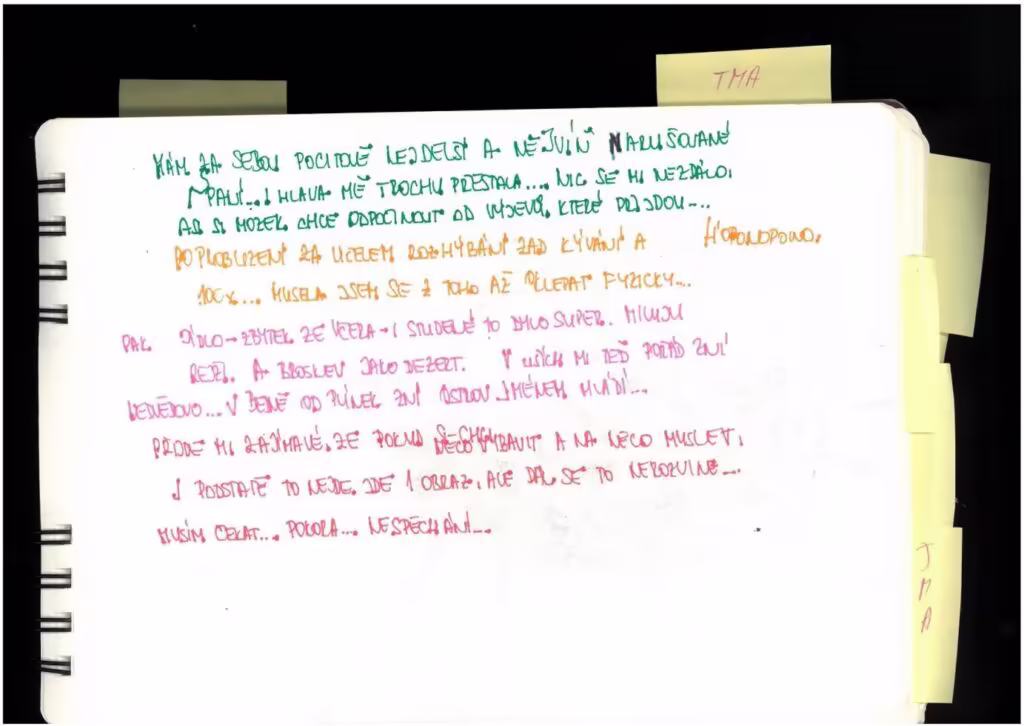 TMA
MÁM ZA SEBOU POCITOVĚ NEJDELŠÍ A NEJVÍŇ NARUŠOVANÉ
SPANÍ... I HLAVA MĚ TROCHU PŘESTALA.... NIC SE MI NEZDÁLO.
ASI SI MOZEK CHCE ODPOČINOUT OD VÝJEVŮ, KTERÉ PŘIJDOU...
PO PROBUZENÍ ZA ÚČELEM ROZHÝBÁNÍ ZAD KÝVÁNÍ A HOPONOPONO.
100x... MUSELA JSEM SE Z TOHO AŽ FYZICKY...
PAK JÍDLO → ZBYTEK ZE VČERA → I STUDENÉ TO BYLO SUPER. MILUJU
A BROSKEV JAKO DEZERT. V UŠÍCH MI TEĎ POŘÁD ZNÍ
... V PODÁNÍ OD ZNÍ OSTROV JMÉNEM MLÁDÍ...
PŘIJDE MI ZAJÍMAVÉ, ŽE POKUD SI CHCI NĚCO VYBAVIT A NA NĚCO MYSLET,
V PODSTATĚ TO NEJDE. JDE 1 OBRAZ, ALE DÁL SE TO NEROZVINE...
MUSÍM ČEKAT... POKORA... NESPĚCHÁNÍ...
TMA